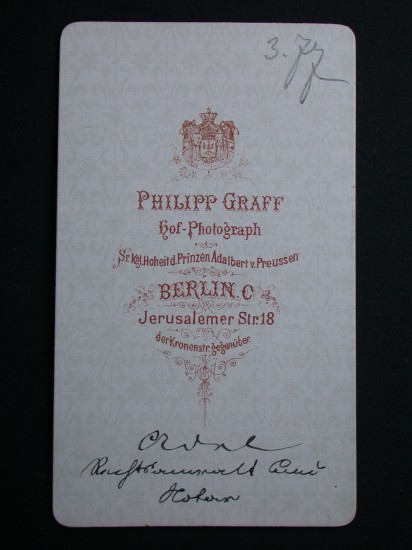 3.
PHILIPP GRAFF
Hof-Photograph
Sr. Kgl. Hoheit d. Prinzen Adalbert v. Preussen
BERLIN. C
Jerusalemer Str. 18
der Kronenstr. gegenüber.
Rechtsanwalt und
Notar